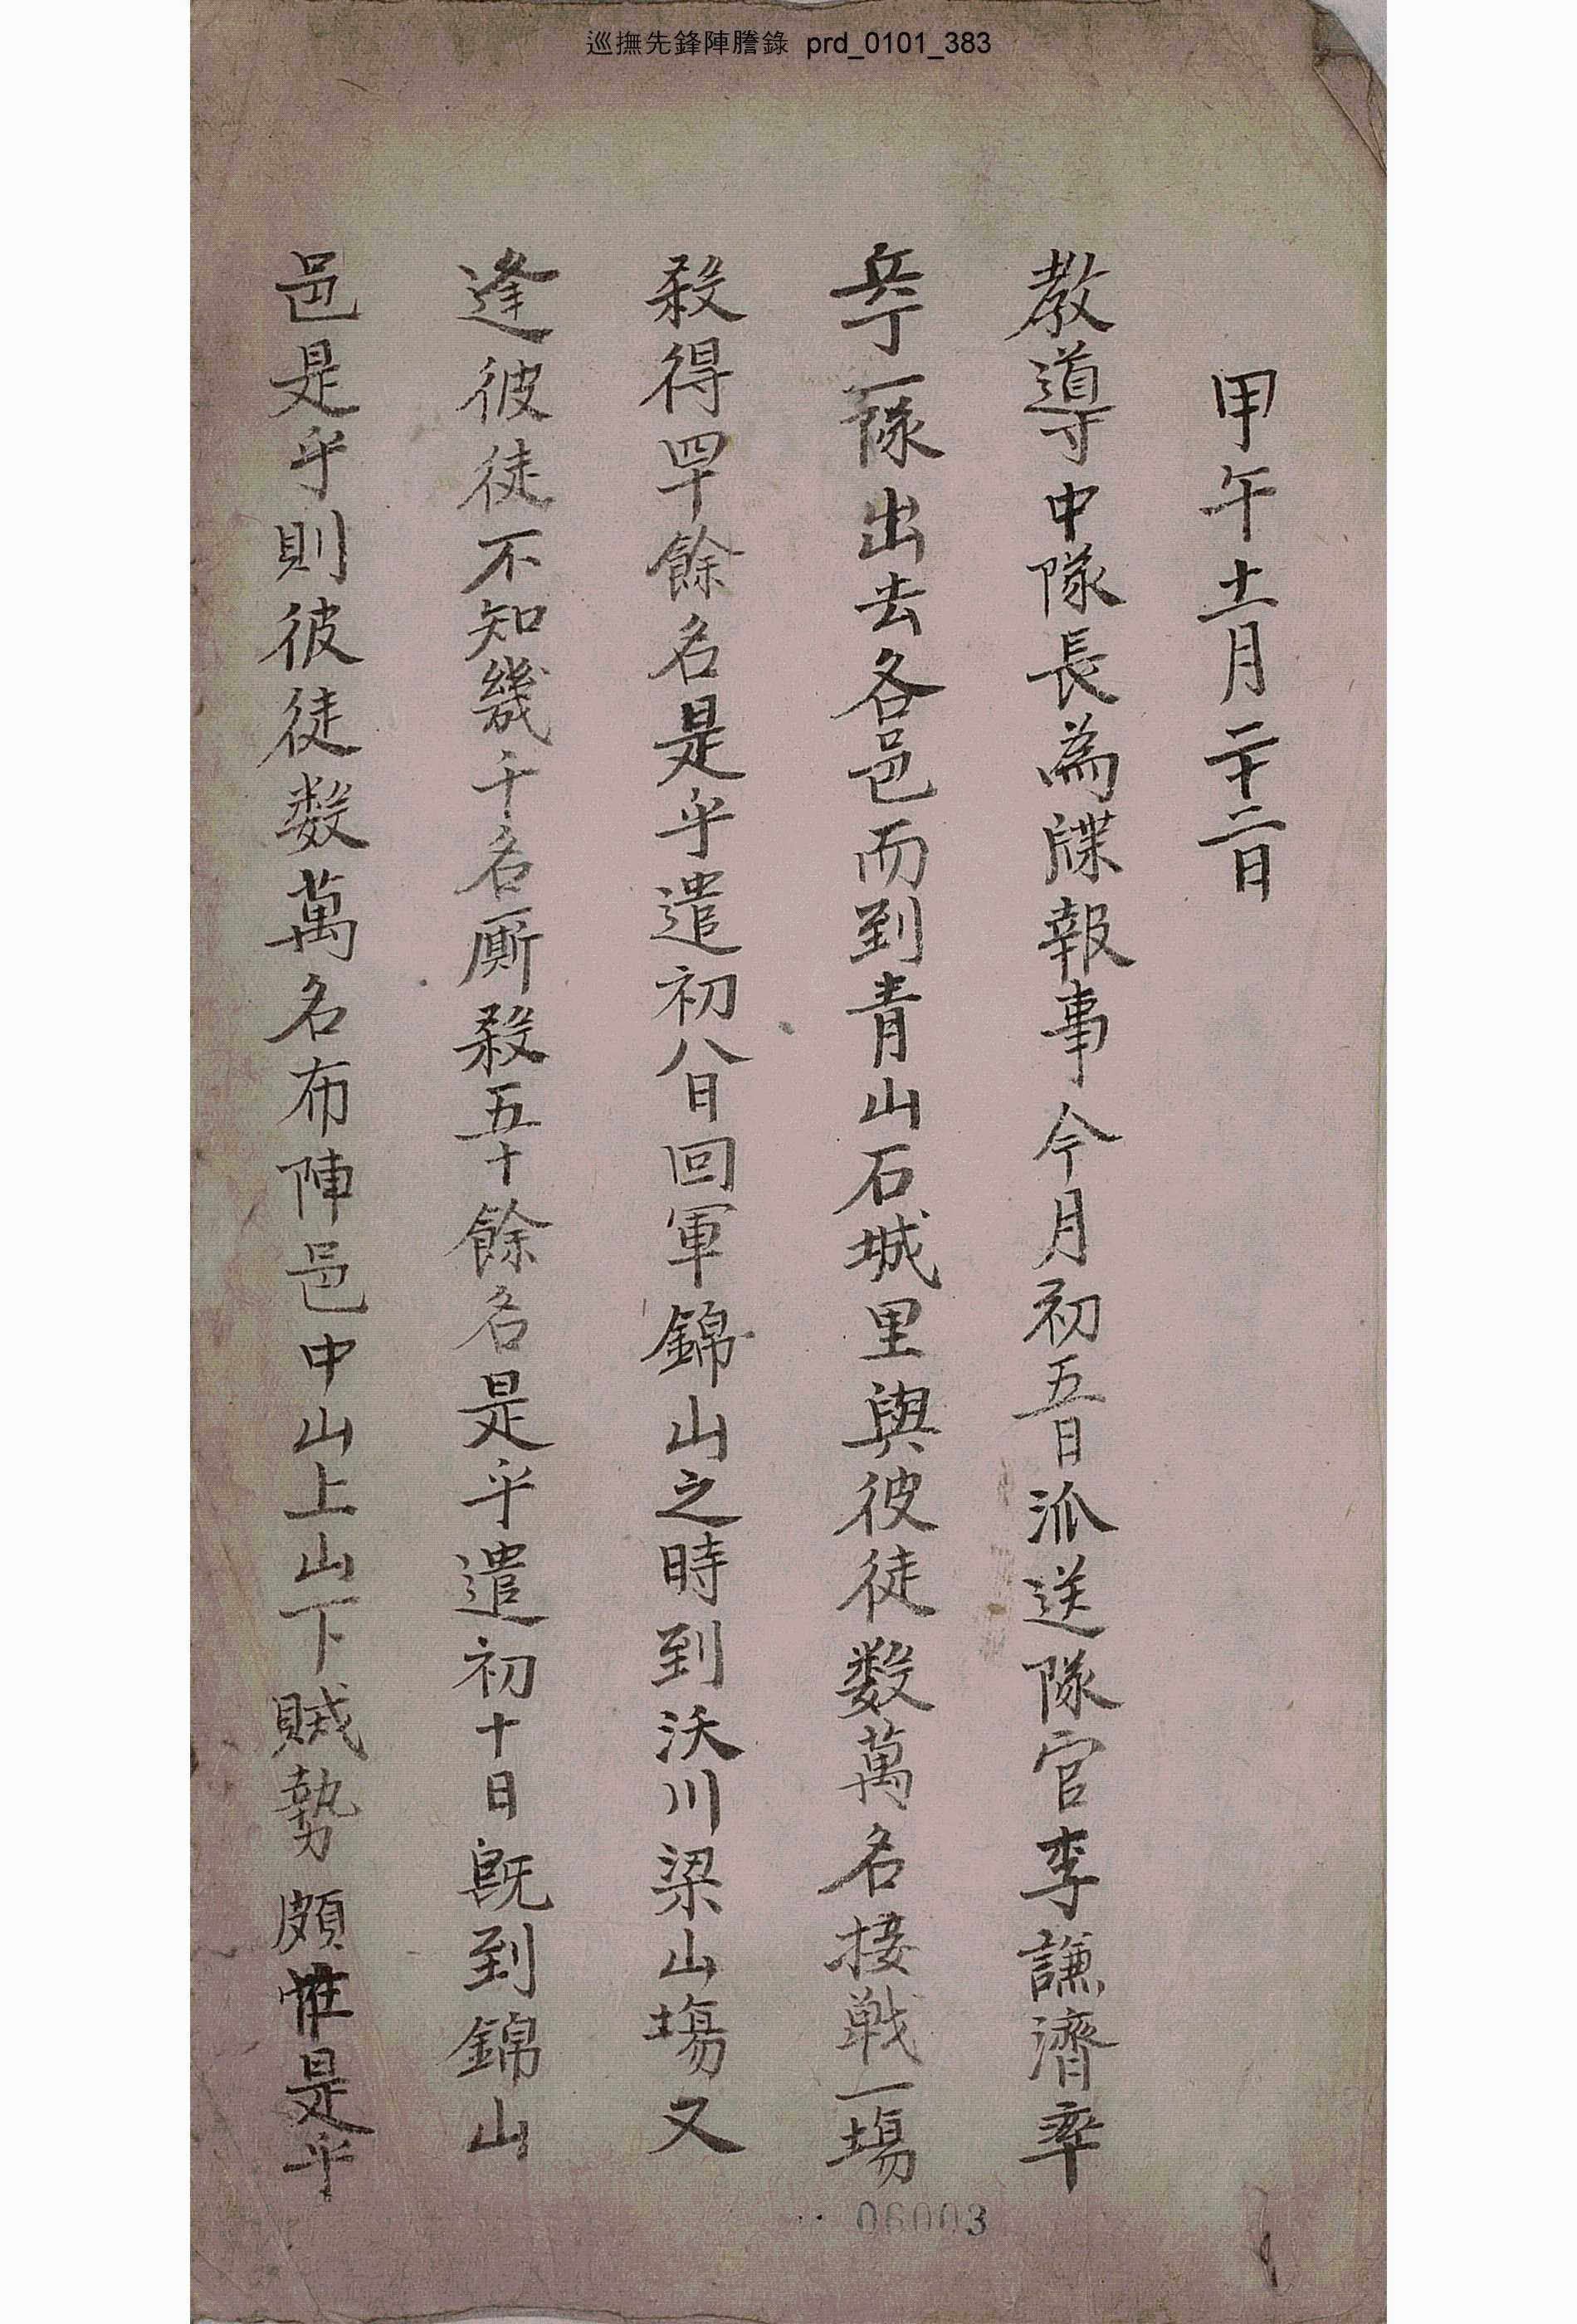 巡撫先鋒陣謄錄 prd_0101_383
甲午十一月二十二日
教導中隊長為牒報事今月初五日派送隊官李謙濟率
兵丁一隊出去各邑而到青山石城里與彼徒数萬名接戦一塲
殺得四十餘名是乎遣初八日回軍錦山之時到沃川梁山塲又
逢彼徒不知幾千名厮殺五十餘名是乎遣初十日旣到錦山
邑是乎則彼徒数萬名布陣邑中山上山下賊勢頗惟是乎
06003